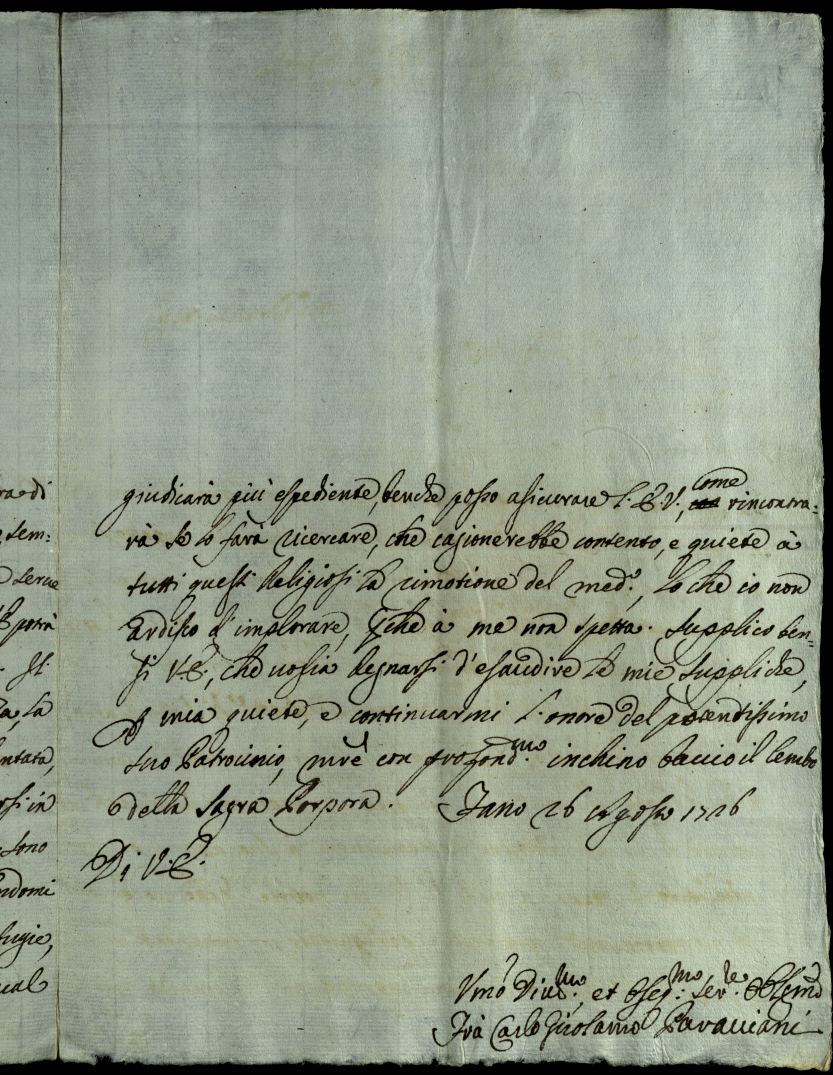 ra di
sem:
serue
potrà
. Il
la
ntata,
osi in
sono
ndomi
fugie,
ual
giudicarà più espediente, benche posso asicurare l'E.V., come rincontra:
rà se lo farà ricercare, che casionerebbe contento, e quiete à
tutti questi Religiosi la rimotione del med.º, lo che io non
ardisco d'implorare, che à me non spetta. Supplico ben:
si V.E., che uosia degnarsi d'esaudire le mie suppliche,
mia quiete, e continuarmi l'onore del potentissimo
suo Patrocinio, mrẽ con profond.mo inchino baccio il lembo
della Sagra Porpora. Fano 26 Agosto 1726
Di V.E.
Vmo Diu.mo, et Osseq.mo Ser.re Obblg.mo
Frà Carlo Girolamo Paracciani